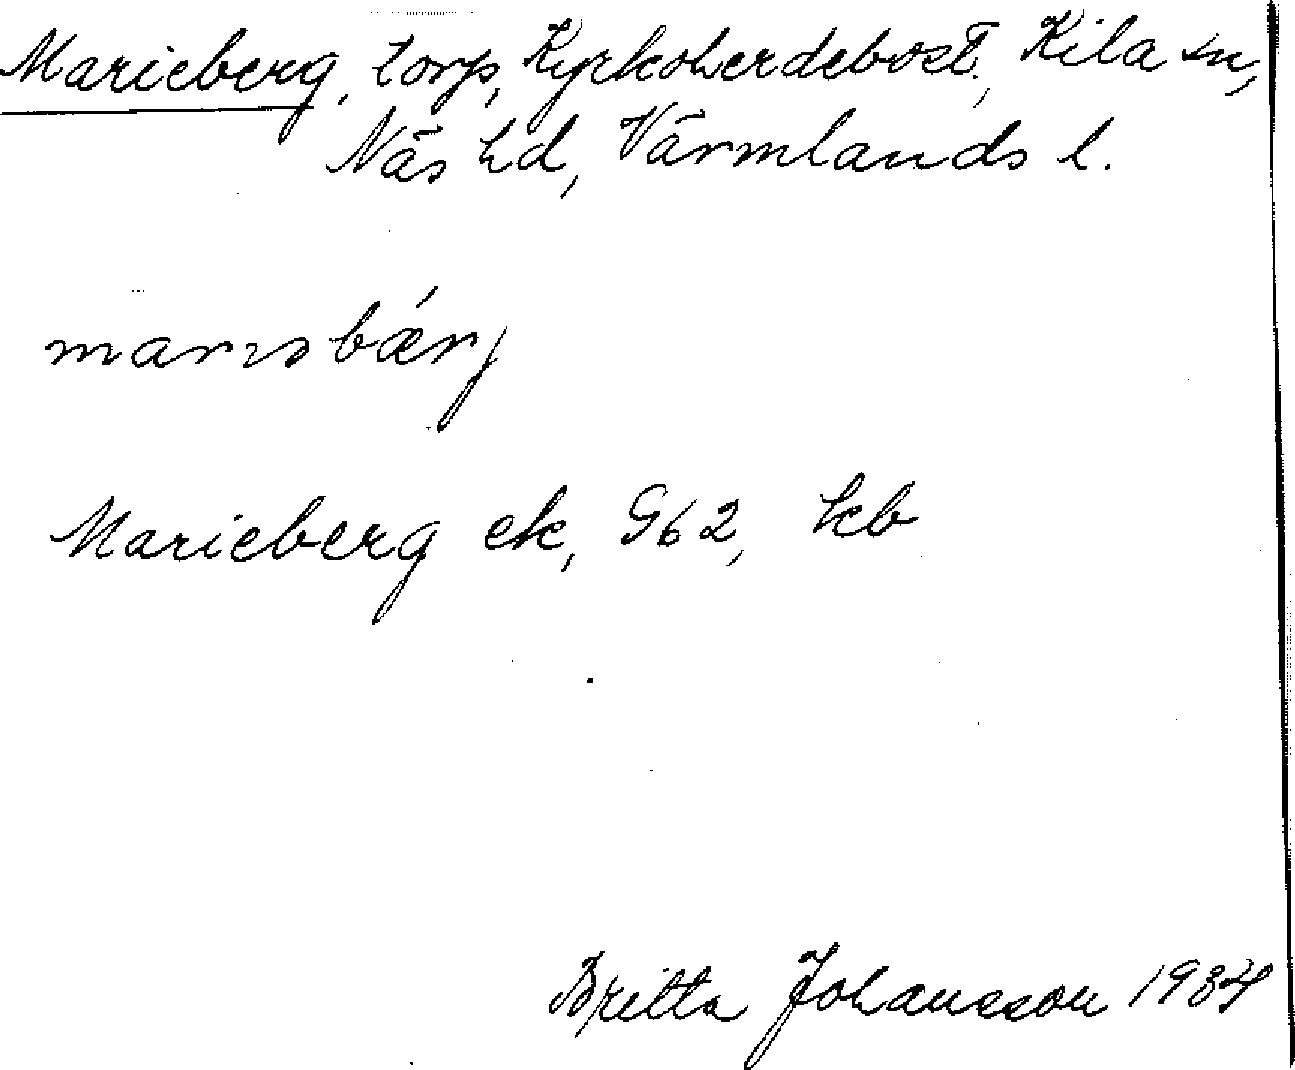 Marieberg, torp, Kyrkoherdebost., Kila sn,
Näs hd, Värmlands l.
Marieberg ek, G62, kb
Britta Johansson 1984